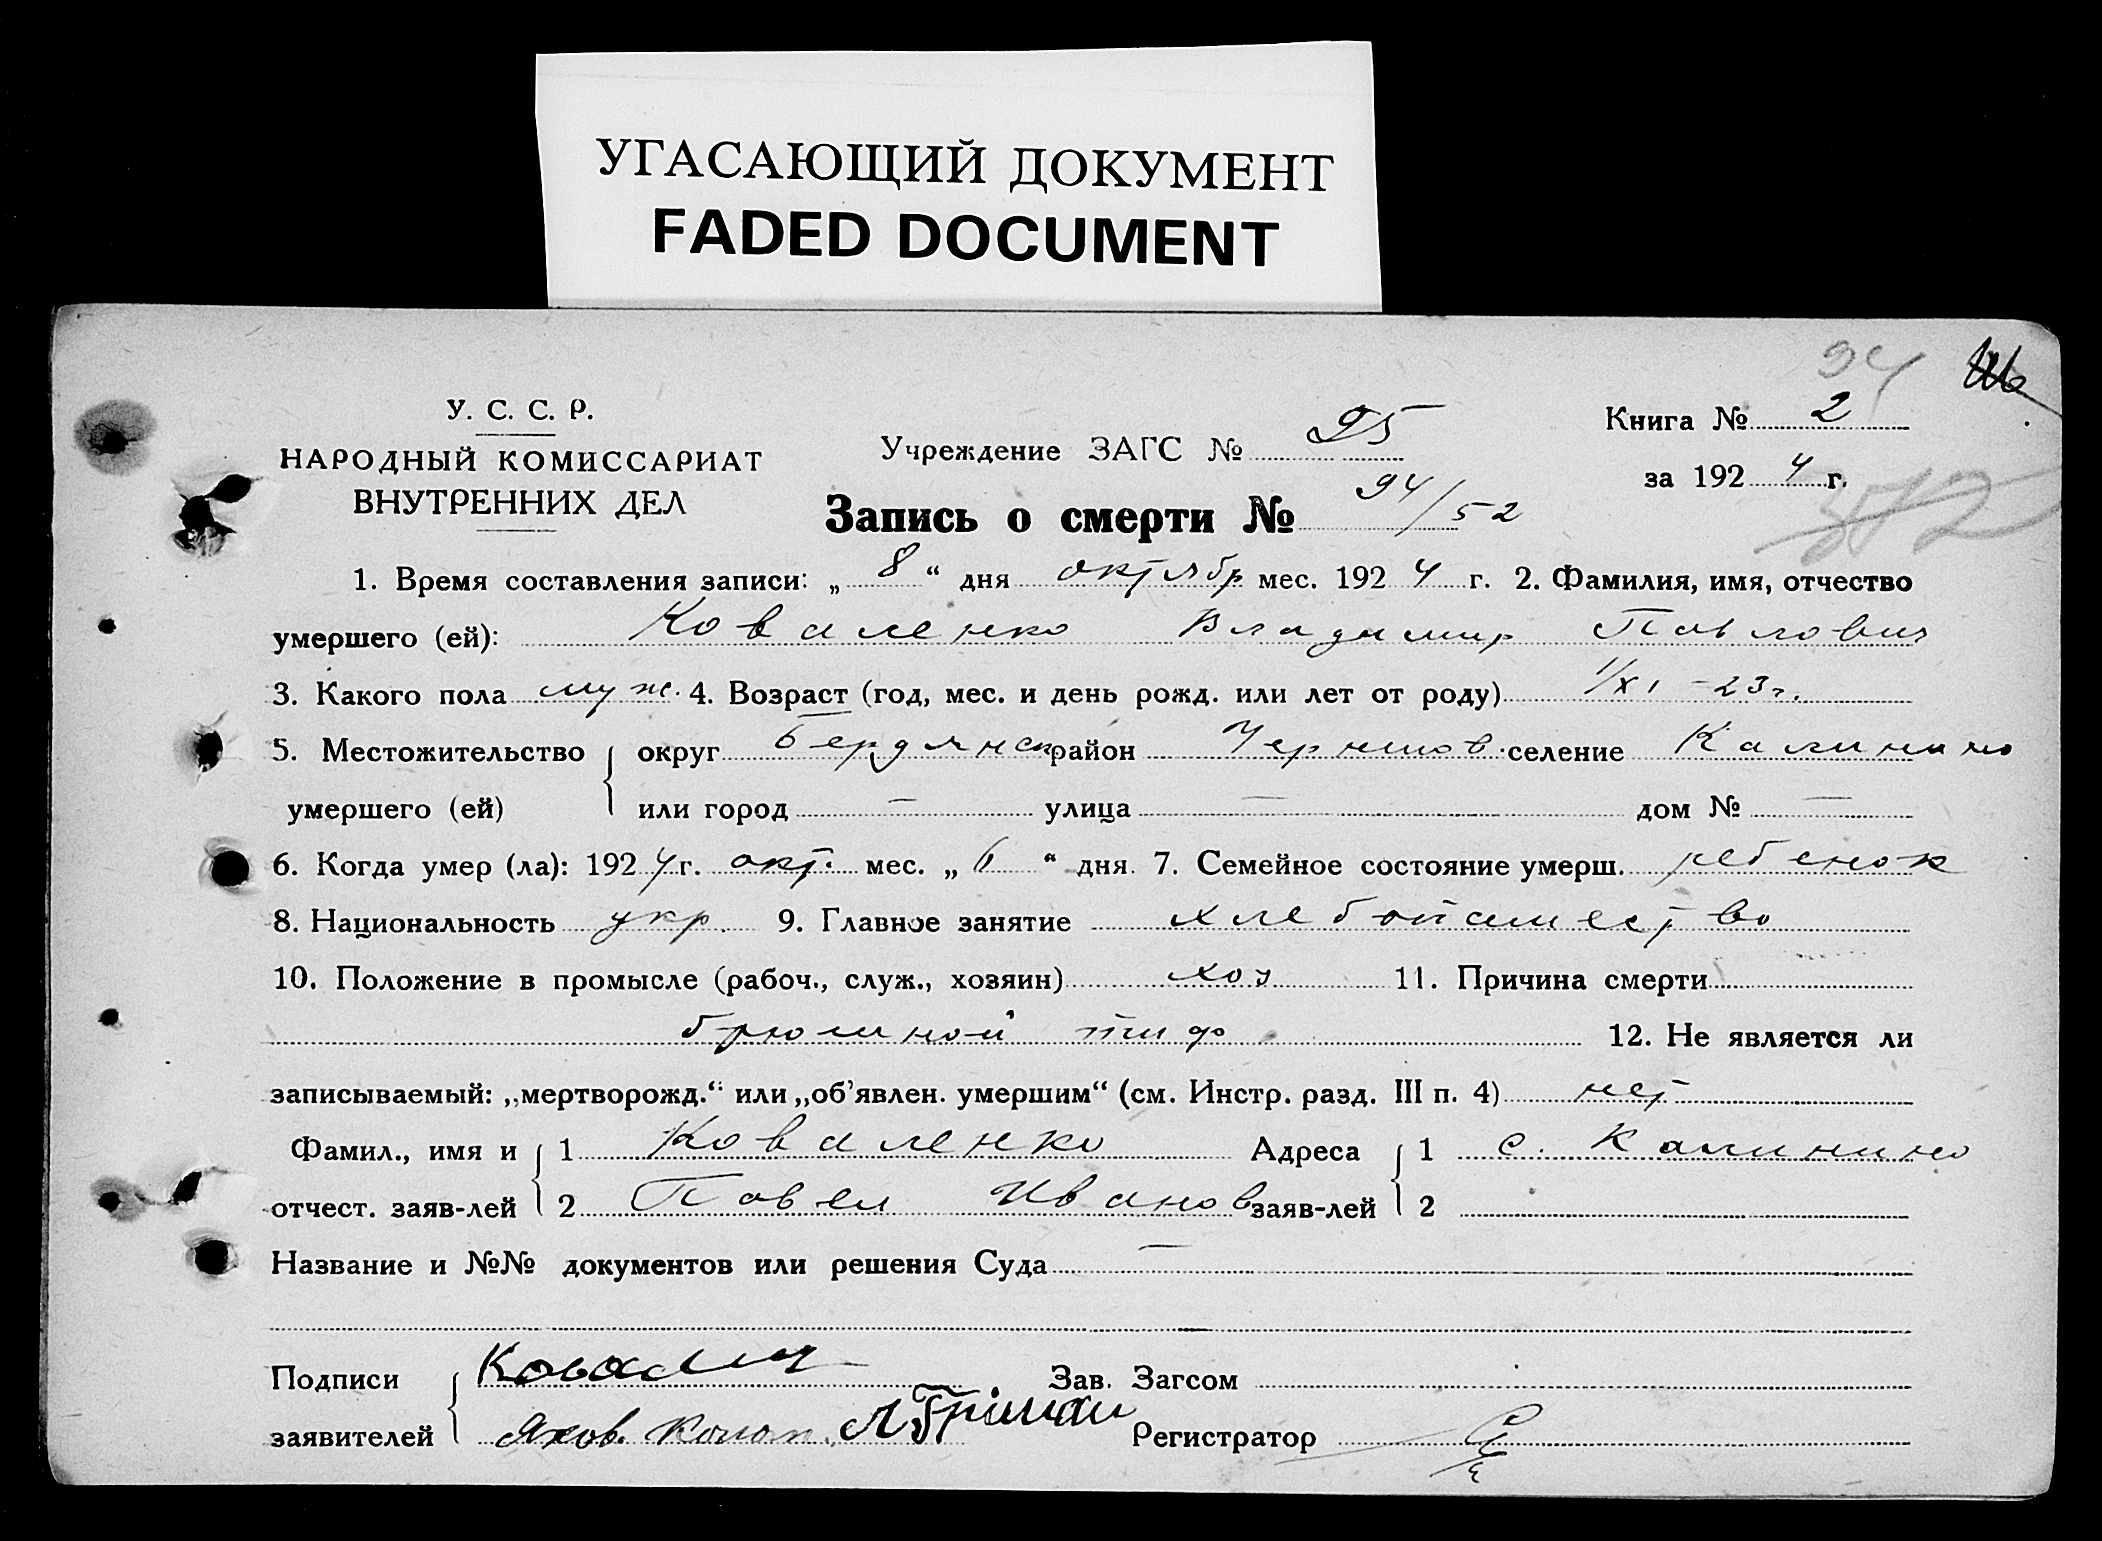 УГАСАЮЩИЙ ДОКУМЕНТ
FADED DOCUMENT
94
У. С. С. Р.
НАРОДНЫЙ КОМИССАРИАТ
ВНУТРЕННИХ ДЕЛ
Учреждение ЗАГС № 95
Книга № 2
за 1924 г.
Запись о смерти № 94/52
1. Время составления записи: „ 8 “ дня октябр мес. 1924 г. 2. Фамилия, имя, отчество
умершего (ей): Коваленко Владимир Павлович
3. Какого пола муж. 4. Возраст (год, мес. и день рожд. или лет от роду) 1/XI - 23 г.
5. Местожительство округ Бердянск район Черниговс. селение Калинино
умершего (ей) или город — улица — дом № —
6. Когда умер (ла): 1924 г. окт. мес. „ 6 “ дня. 7. Семейное состояние умерш. ребенок
8. Национальность укр. 9. Главное занятие хлебопашество
10. Положение в промысле (рабоч., служ., хозяин) хоз 11. Причина смерти
брюшной тиф 12. Не является ли
записываемый: „мертворожд.“ или „об'явлен. умершим“ (см. Инстр. разд. III п. 4) нет
Фамил., имя и 1 Коваленко Адреса 1 с. Калинино
отчест. заяв-лей 2 Павел Иванов заяв-лей 2
Название и №№ документов или решения Суда —
Подписи Зав. Загсом
заявителей Регистратор